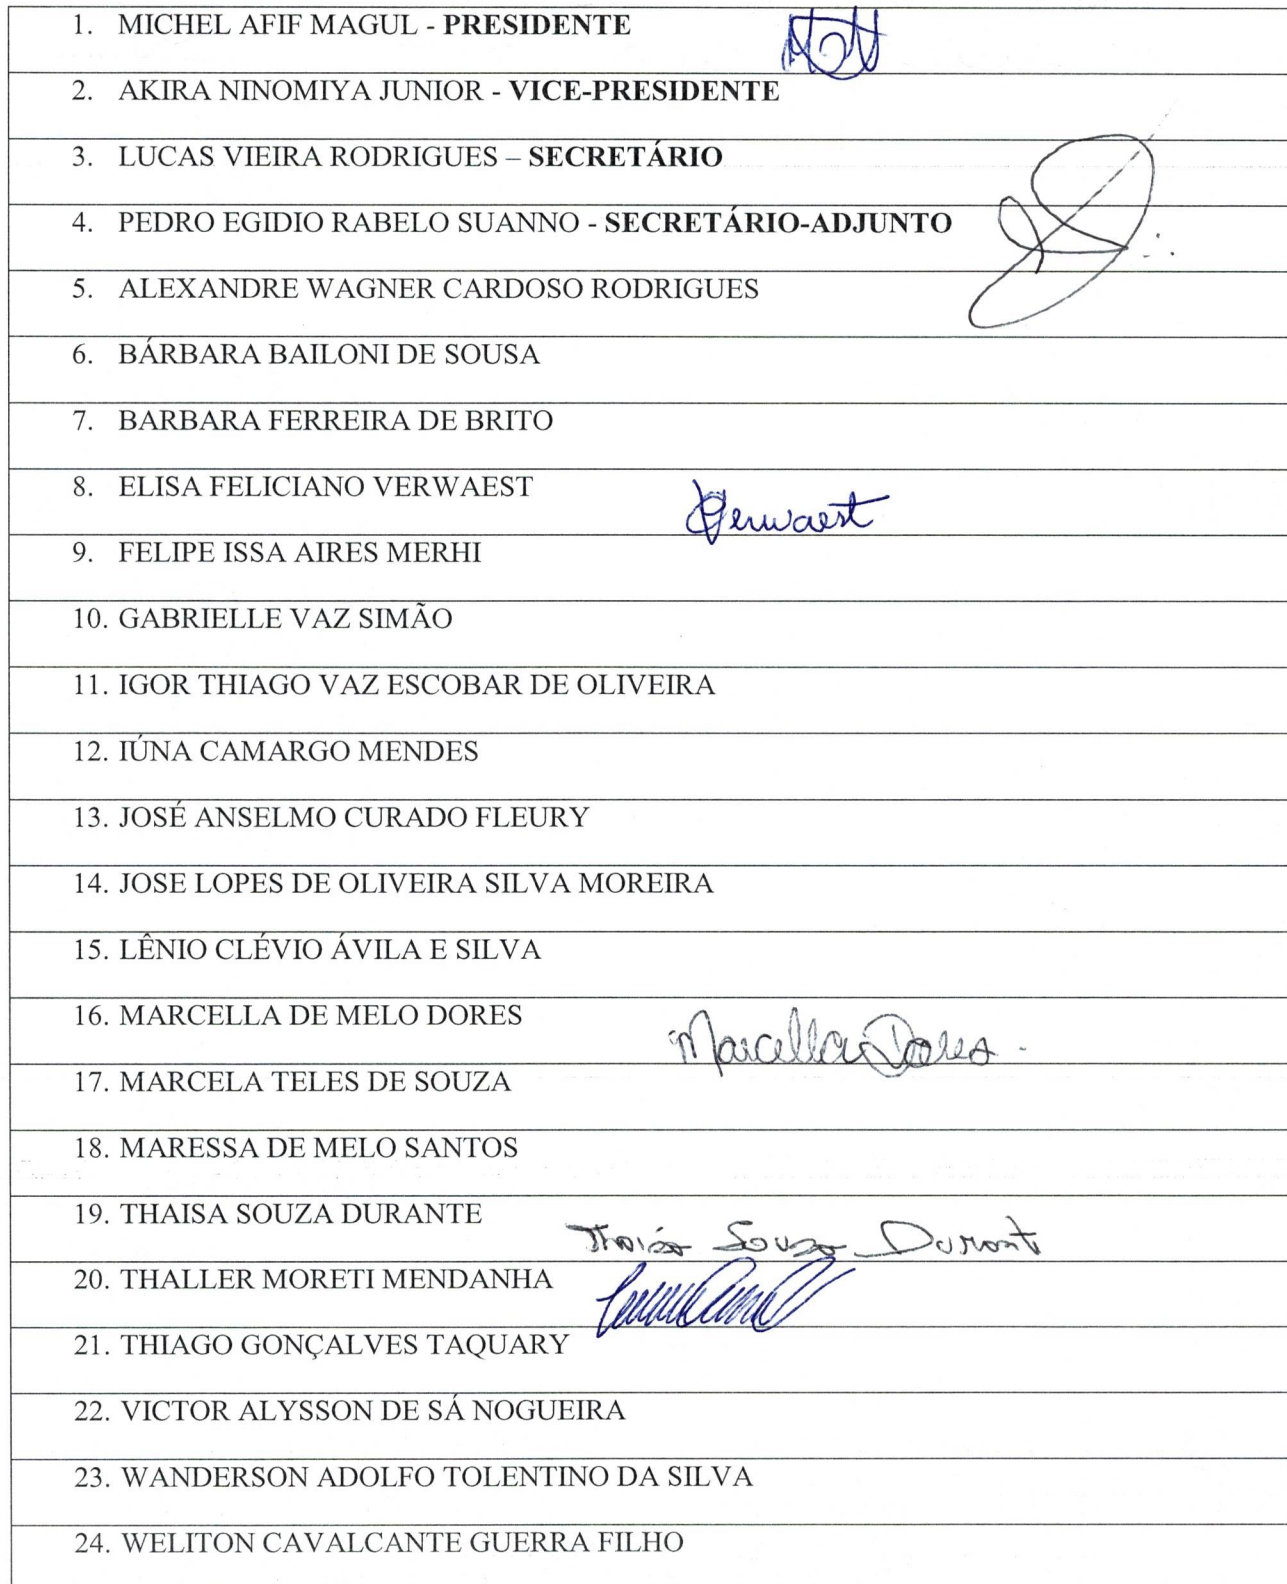 1. MICHEL AFIF MAGUL - PRESIDENTE
2. AKIRA NINOMIYA JUNIOR - VICE-PRESIDENTE
3. LUCAS VIEIRA RODRIGUES – SECRETÁRIO
4. PEDRO EGIDIO RABELO SUANNO - SECRETÁRIO-ADJUNTO
5. ALEXANDRE WAGNER CARDOSO RODRIGUES
6. BÁRBARA BAILONI DE SOUSA
7. BARBARA FERREIRA DE BRITO
8. ELISA FELICIANO VERWAEST
Verwaest
9. FELIPE ISSA AIRES MERHI
10. GABRIELLE VAZ SIMÃO
11. IGOR THIAGO VAZ ESCOBAR DE OLIVEIRA
12. IÚNA CAMARGO MENDES
13. JOSÉ ANSELMO CURADO FLEURY
14. JOSE LOPES DE OLIVEIRA SILVA MOREIRA
15. LÊNIO CLÉVIO ÁVILA E SILVA
16. MARCELLA DE MELO DORES
Marcella Dores
17. MARCELA TELES DE SOUZA
18. MARESSA DE MELO SANTOS
19. THAISA SOUZA DURANTE
Thaisa Souza Durante
20. THALLER MORETI MENDANHA
21. THIAGO GONÇALVES TAQUARY
22. VICTOR ALYSSON DE SÁ NOGUEIRA
23. WANDERSON ADOLFO TOLENTINO DA SILVA
24. WELITON CAVALCANTE GUERRA FILHO